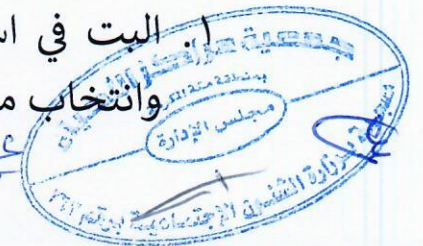 ١. البت في
وانتخاب
جمعية مراكز الأحياء
بمنطقة مكة المكرمة
مجلس الإدارة
مسجلة بوزارة الشئون الإجتماعية برقم